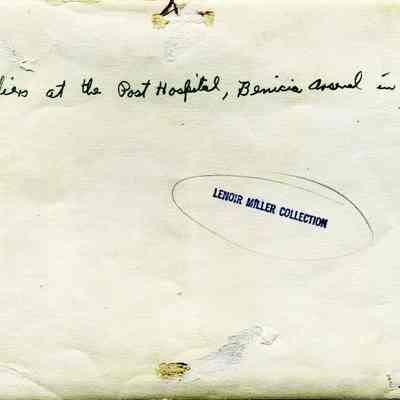 liers at the Post Hospital, Benicia Arsenal in
LENOIR MILLER COLLECTION